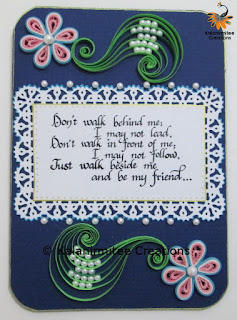 Don't walk behind me;
I may not lead.
Don't walk in front of me;
I may not follow.
Just walk beside me
and be my friend...